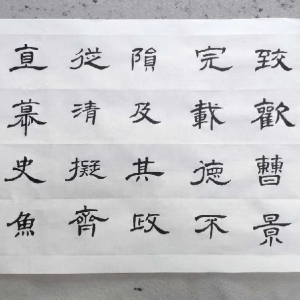 致歡曹景
完載德不
隕及其政
從清擬齊
直慕史魚